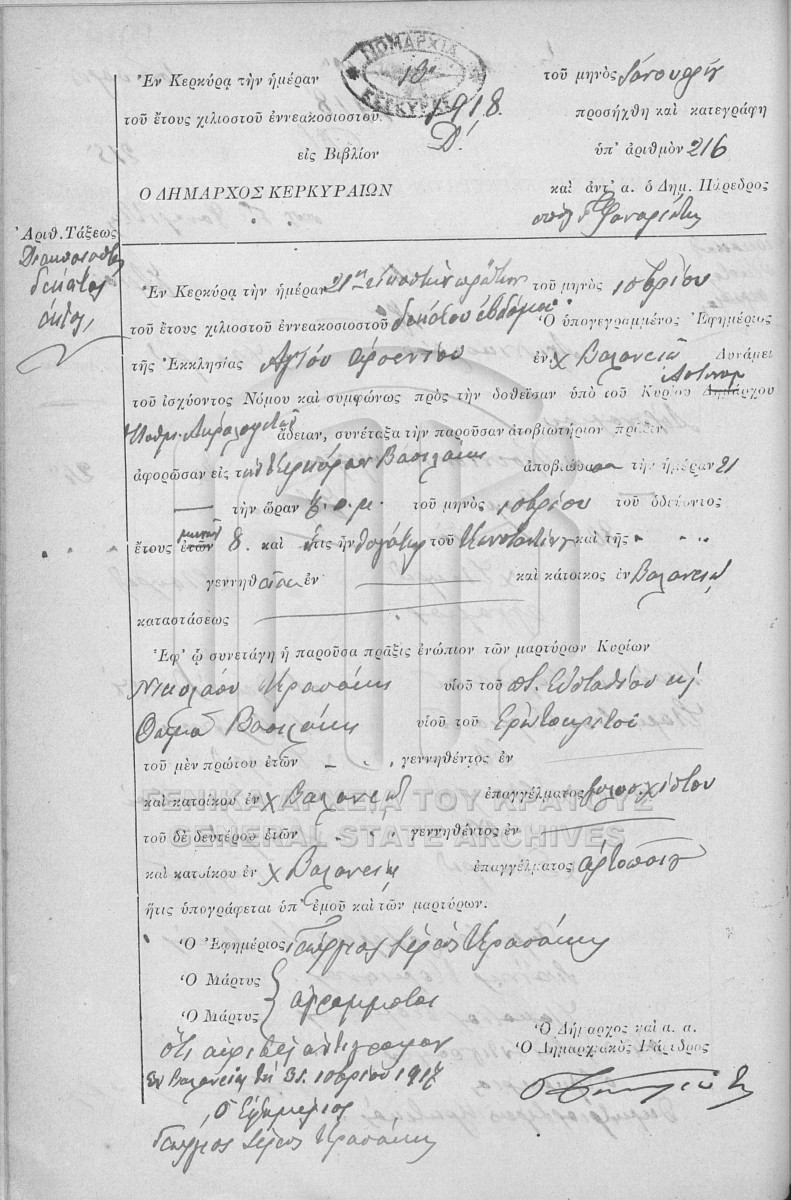 ΔΗΜΑΡΧΙΑ
ΚΕΡΚΥΡΑΣ
Ἐν Κερκύρᾳ τὴν ἡμέραν 18 τοῦ μηνὸς
τοῦ ἔτους χιλιοστοῦ ἐννεακοσιοστοῦ 1918 προσήχθη καὶ κατεγράφη
εἰς Βιβλίον Δ! ὑπ' ἀριθμὸν 216
Ο ΔΗΜΑΡΧΟΣ ΚΕΡΚΥΡΑΙΩΝ καὶ ἀντ' α. ὁ Δημ. Πάρεδρος
Ἀριθ. Τάξεως
δέκατος
Ἐν Κερκύρᾳ τὴν ἡμέραν 21ην εἰκοστὴν πρώτην τοῦ μηνὸς 10βρίου
τοῦ ἔτους χιλιοστοῦ ἐννεακοσιοστοῦ δεκάτου ἑβδόμου Ὁ ὑπογεγραμμένος Ἐφημέριος
τῆς Ἐκκλησίας Ἁγίου Ἀρσενίου ἐν χ Βαλανειῷ Δυνάμει
τοῦ ἰσχύοντος Νόμου καὶ συμφώνως πρὸς τὴν δοθεῖσαν ὑπὸ τοῦ Κυρίου Δημάρχου Ἀστυνόμ
ἄδειαν, συνέταξα τὴν παροῦσαν ἀποβιωτήριον πρᾶξιν
ἀφορῶσαν εἰς τὴν Βασιλάκη ἀποβιώσασαν τὴν ἡμέραν 21
τὴν ὥραν π.μ. τοῦ μηνὸς 10βρίου τοῦ ὁδεύοντος
ἔτους ἐτῶν μηνῶν 8. καὶ ἥτις ἦν θυγάτηρ τοῦ Κωνσταντίνου καὶ τῆς
γεννηθεῖσα ἐν καὶ κάτοικος ἐν Βαλανειῷ
καταστάσεως
Ἐφ' ᾧ συνετάγη ἡ παροῦσα πρᾶξις ἐνώπιον τῶν μαρτύρων Κυρίων
Νικολάου Κρασάκη υἱοῦ τοῦ π. Εὐσταθίου κ
Θωμᾶ Βασιλάκη υἱοῦ τοῦ Ἐρωτοκρίτου
τοῦ μὲν πρώτου ἐτῶν γεννηθέντος ἐν
καὶ κατοίκου ἐν χ Βαλανειῷ ἐπαγγέλματος ξυλοσχίστου
τοῦ δὲ δευτέρου ἐτῶν γεννηθέντος ἐν
καὶ κατοίκου ἐν χ Βαλανειῷ ἐπαγγέλματος ἀρτοποιοῦ
ἥτις ὑπογράφεται ὑπ' ἐμοῦ καὶ τῶν μαρτύρων.
Ὁ Ἐφημέριος Γεώργιος Ἱερεὺς Κρασάκης
Ὁ Μάρτυς
ἀγράμματοι
Ὁ Μάρτυς
Ὅτι ἀκριβὲς ἀντίγραφον
Ἐν Βαλανειῷ τῇ 31 10βρίου 1917
Ὁ Ἐφημέριος
Γεώργιος Ἱερεὺς Κρασάκης
Ὁ Δήμαρχος καὶ α. α.
Ὁ Δημαρχιακὸς Πάρεδρος
ΓΕΝΙΚΑ ΑΡΧΕΙΑ ΤΟΥ ΚΡΑΤΟΥΣ
GENERAL STATE ARCHIVES